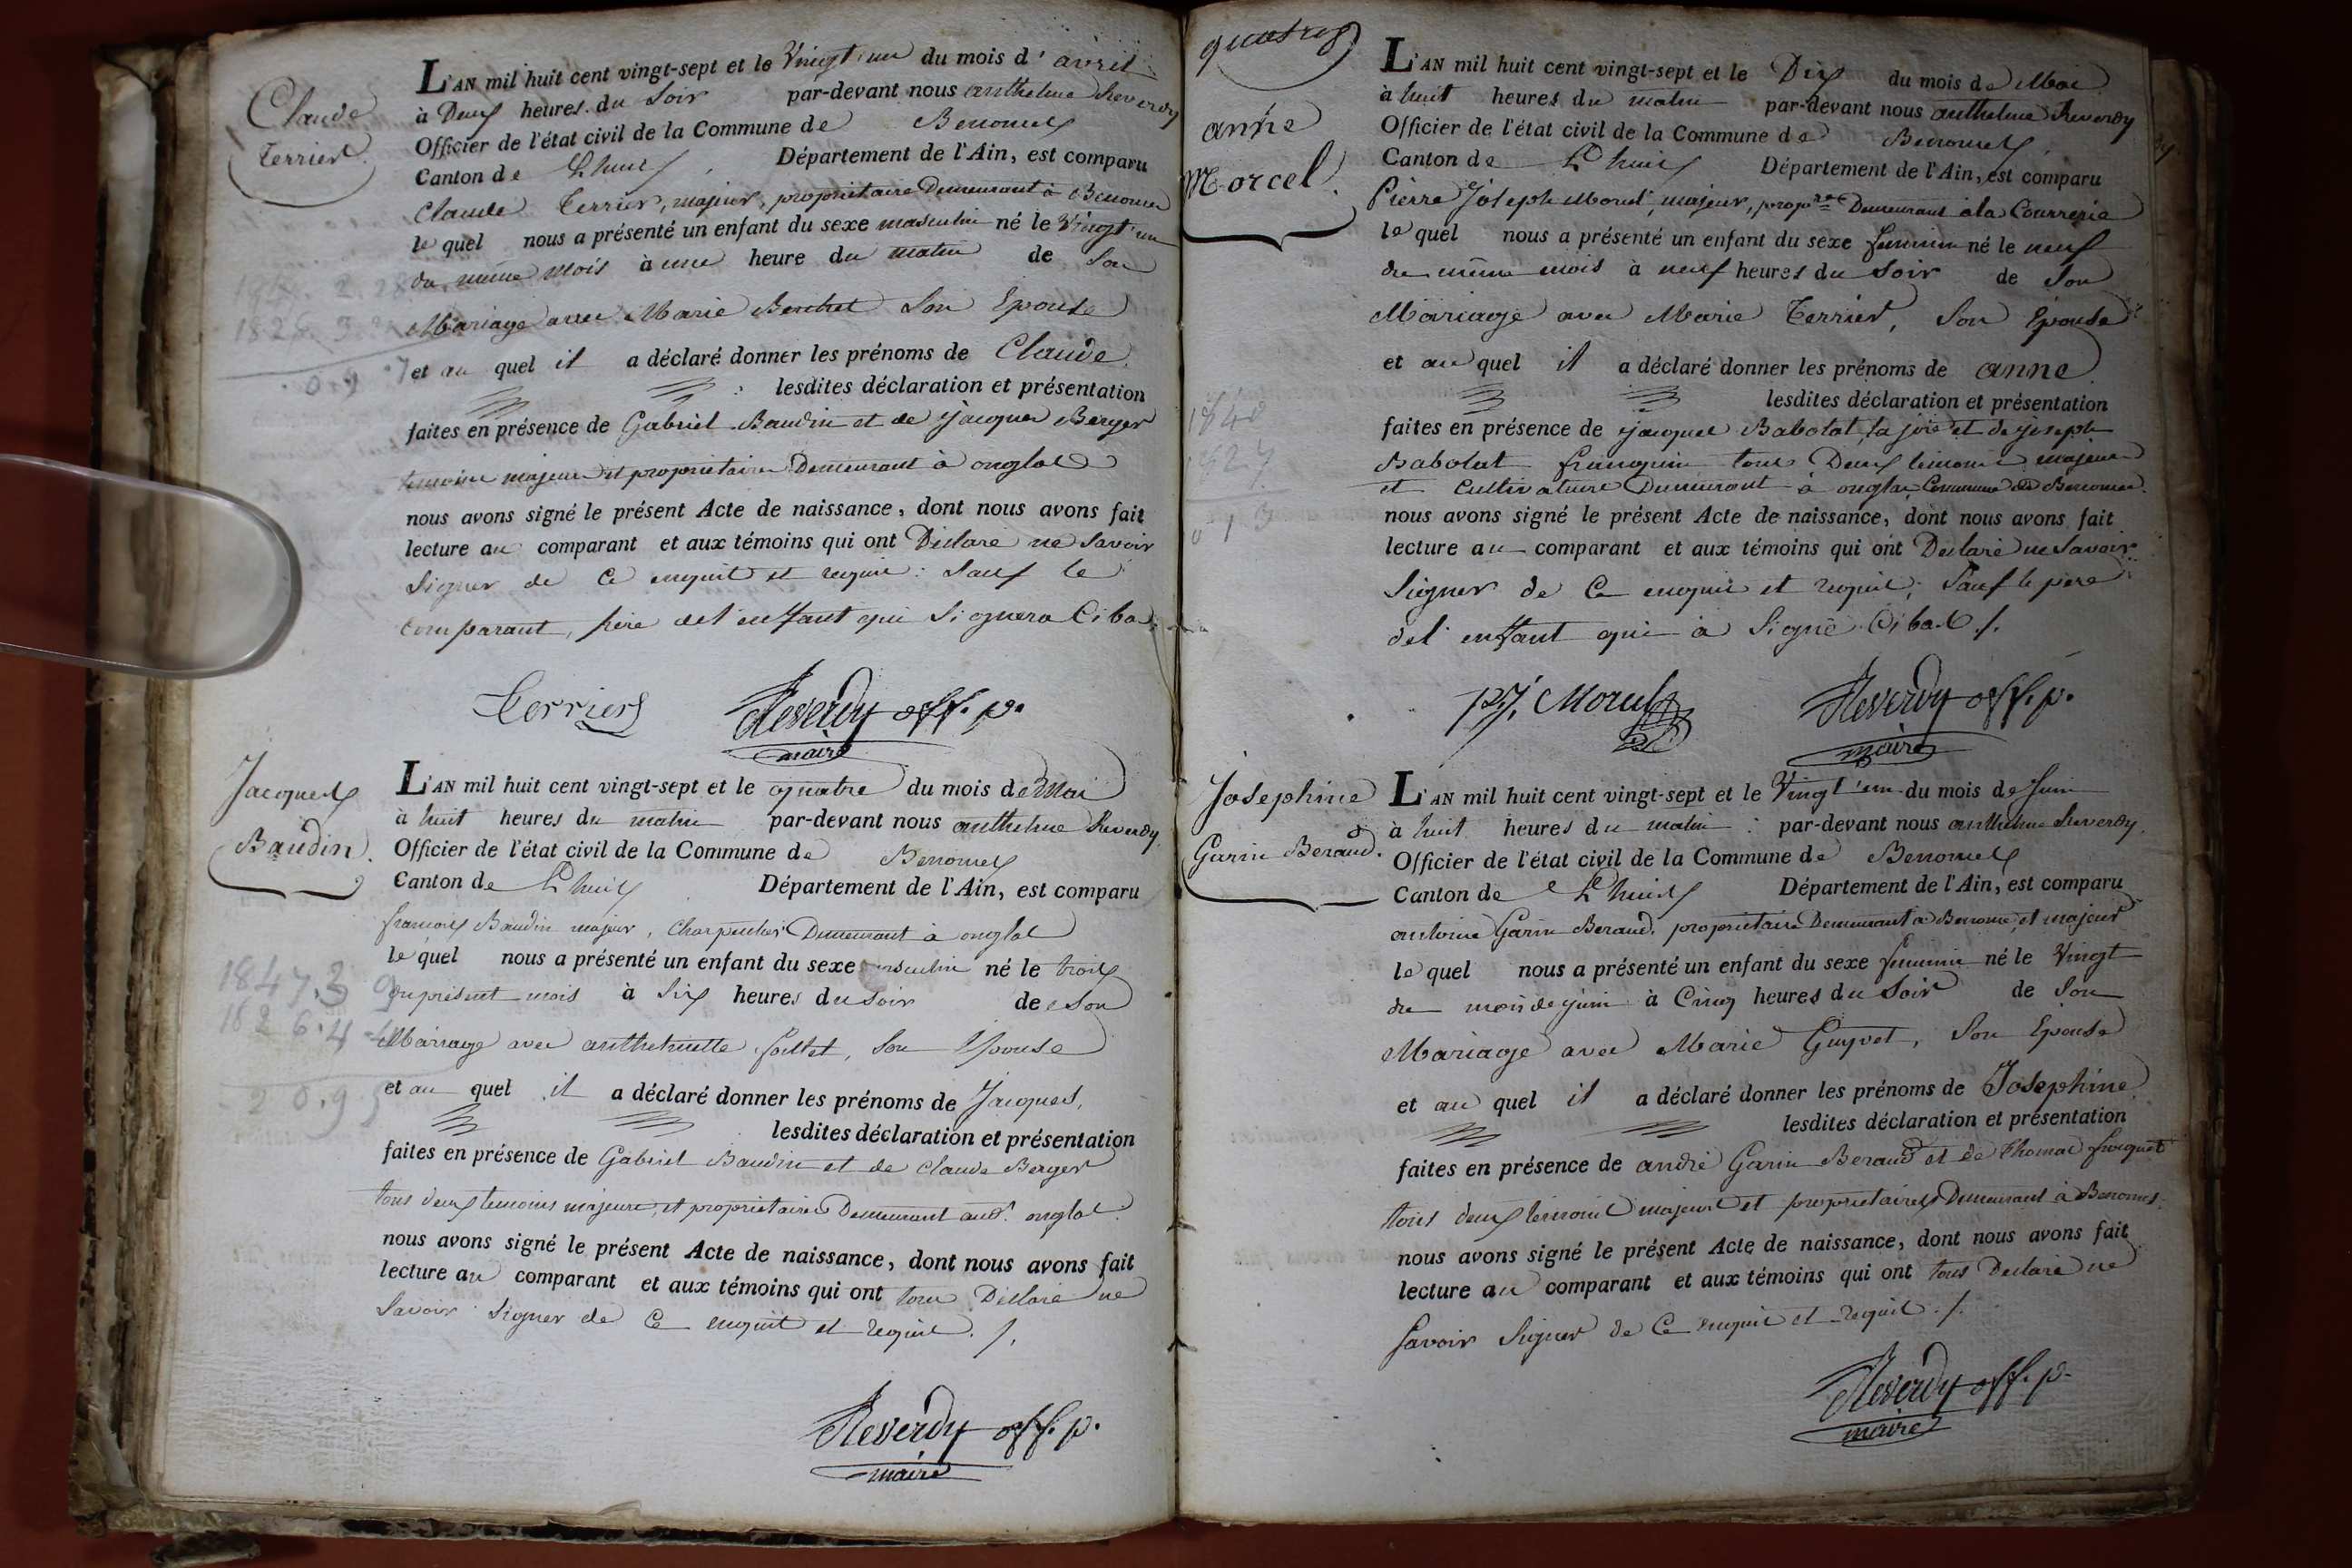 Claude
Terrier.
L'AN mil huit cent vingt-sept et le Vingt'un du mois d'avril
à Deux heures du Soir par-devant nous anthelme Reverdy
Officier de l'état civil de la Commune de Benonces
Canton de Lhuis, Département de l'Ain, est comparu
Claude Terrier, majeur, propriétaire Demeurant à Benonces
le quel nous a présenté un enfant du sexe masculin né le Vingt'un
du même mois à une heure du matin de Son
Mariage avec Marie Berchet Son Epouse
et au quel il a déclaré donner les prénoms de Claude.
lesdites déclaration et présentation
faites en présence de Gabriel Baudin et de Jacques Berger
temoins majeurs et propriétaires Demeurant à onglas
nous avons signé le présent Acte de naissance, dont nous avons fait
lecture au comparant et aux témoins qui ont Déclaré ne Savoir
Signer de Ce enquit et requis: Sauf le
Comparant, père del'enffant qui Signera Ci bas.
Terrier Reverdy off. p.
maire
Jacques
Baudin.
L'AN mil huit cent vingt-sept et le quatre du mois de Mai
à huit heures du matin par-devant nous anthelme Reverdy
Officier de l'état civil de la Commune de Benonces
Canton de Lhuis Département de l'Ain, est comparu
françois Baudin majeur, Charpentier Demeurant à onglas
le quel nous a présenté un enfant du sexe masculin né le trois
du présent mois à Six heures du soir de Son
Mariage avec anthelmette, Son Epouse
et au quel il a déclaré donner les prénoms de Jacques.
lesdites déclaration et présentation
faites en présence de Gabriel Baudin et de Claude Berger
tous deux temoins majeurs, et propriétaires Demeurant aud. onglas
nous avons signé le présent Acte de naissance, dont nous avons fait
lecture au comparant et aux témoins qui ont tous Déclaré ne
Savoir Signer de Ce enquit et requis. /.
Reverdy off. p.
maire
anne
Morcel.
L'AN mil huit cent vingt-sept et le Dix du mois de Mai
à huit heures du matin par-devant nous anthelme Reverdy
Officier de l'état civil de la Commune de Benonces
Canton de Lhuis Département de l'Ain, est comparu
Pierre Joseph Morcel, majeur, propre Demeurant à la Courrerie
le quel nous a présenté un enfant du sexe feminin né le neuf
du même mois à neuf heures du Soir de Son
Mariage avec Marie Terrier, Son Epouse
et au quel il a déclaré donner les prénoms de anne.
lesdites déclaration et présentation
faites en présence de Jacques Babolat la joie et de joseph
Babolat franquin tous Deux temoins majeurs
et Cultivateurs Demeurant à onglas, Commune de Benonces.
nous avons signé le présent Acte de naissance, dont nous avons fait
lecture au comparant et aux témoins qui ont Déclaré ne Savoir
Signer de Ce enquis et requis; Sauf le père
del'enffant qui a Signé Ci bas /.
P.J. Morcel Reverdy off. p.
maire
Josephine
Garin Beraud.
L'AN mil huit cent vingt-sept et le Vingt'un du mois de Juin
à huit heures du matin : par-devant nous anthelme Reverdy
Officier de l'état civil de la Commune de Benonces
Canton de Lhuis Département de l'Ain, est comparu
antoine Garin Beraud, propriétaire Demeurant à Benonces, et majeur
le quel nous a présenté un enfant du sexe feminin né le Vingt
du mois de juin à Cinq heures du Soir de Son
Mariage avec Marie Guyvet, Son Epouse
et au quel il a déclaré donner les prénoms de Josephine
lesdites déclaration et présentation
faites en présence de andré Garin Beraud et de Thomas
tous deux temoins majeurs et propriétaires Demeurant à Benonces.
nous avons signé le présent Acte de naissance, dont nous avons fait
lecture au comparant et aux témoins qui ont tous Déclaré ne
Savoir Signer de Ce enquis et requis. /.
Reverdy off. p.
maire